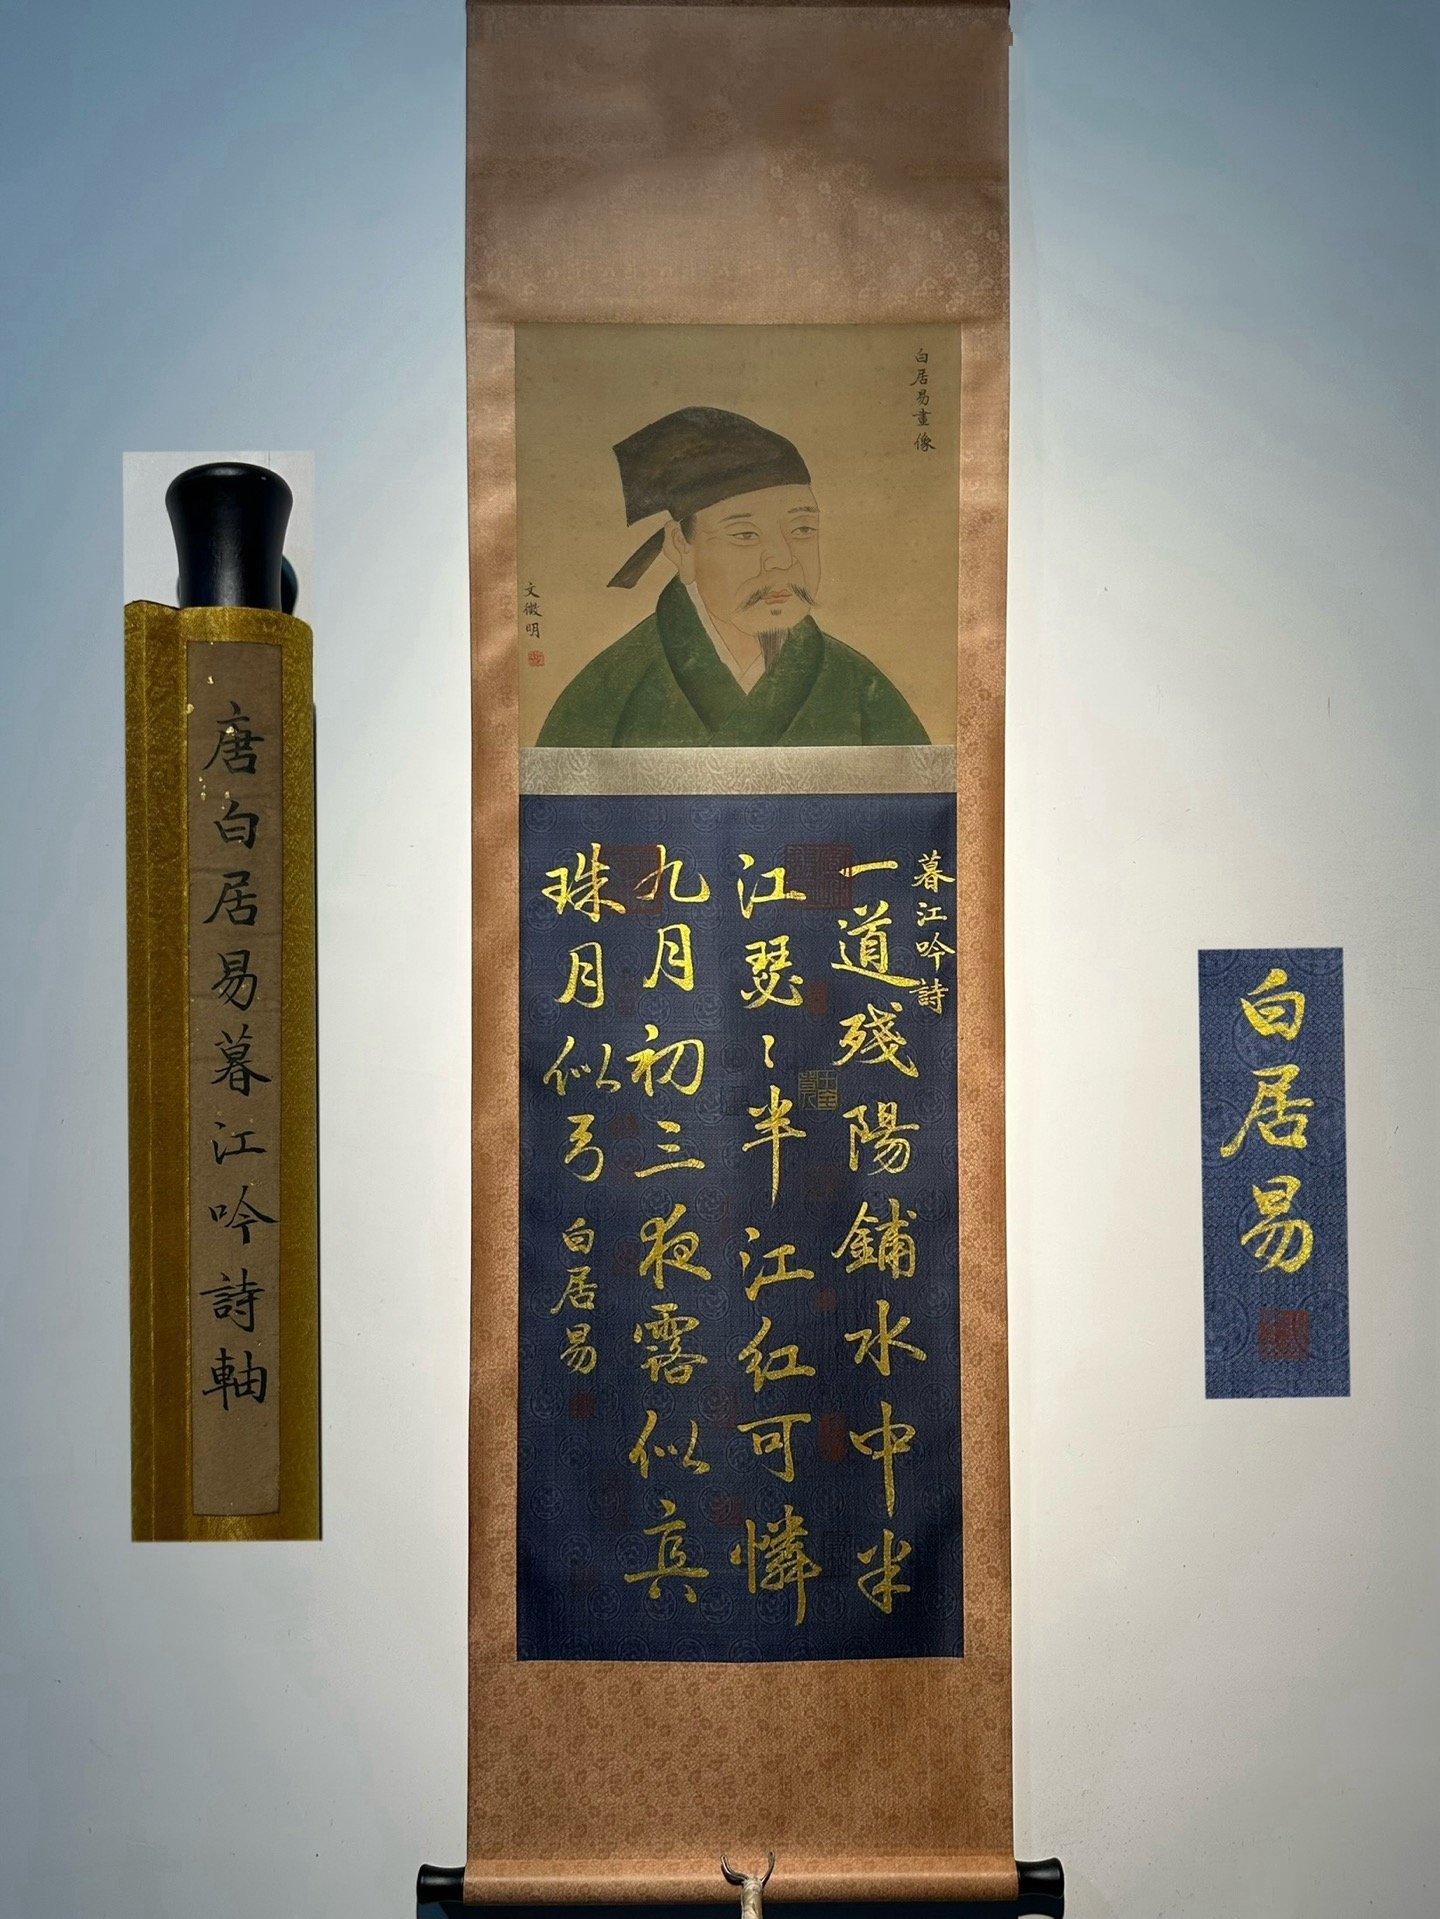 唐白居易暮江吟詩軸
白居易畫像
文徵明
暮江吟詩
一道殘陽鋪水中半
江瑟〻半江红可憐
九月初三夜露似真
珠月似弓
白居易
白居易